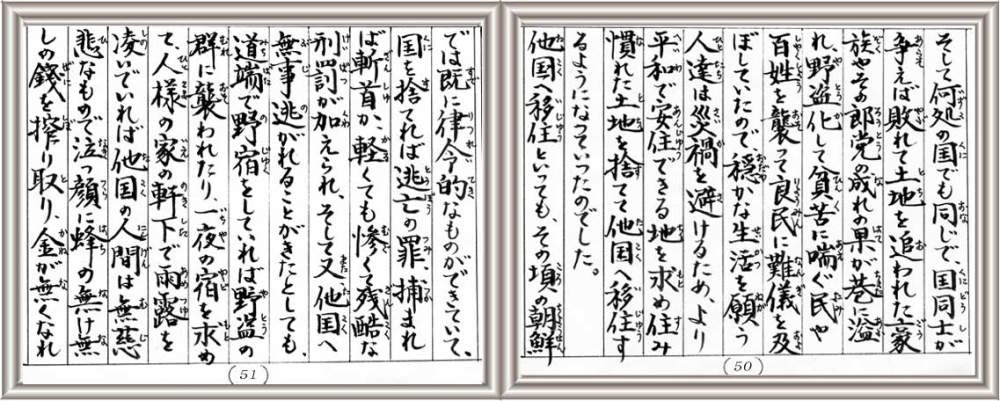 そして何処の国でも同じで、国同士が
争えば敗れて土地を追われた豪
族やその郎党の成れの果が巷に溢
れ、野盗化して貧苦に喘ぐ民や
百姓を襲って良民に難儀を及
ぼしていたので、穏かな生活を願う
人達は災禍を避けるため、より
平和で安住できる地を求め住み
慣れた土地を捨てて他国へ移住す
るようになっていったのでした。
他国へ移住といっても、その頃の朝鮮
(50)
では既に律令的なものができていて、
国を捨てれば逃亡の罪、捕まれ
ば斬首か、軽くても惨くて残酷な
刑罰が加えられ、そして又他国へ
無事逃がれることができたとしても、
道端で野宿をしていれば野盗の
群に襲われたり、一夜の宿を求め
て、人様の家の軒下で雨露を
凌いでいれば他国の人間は無慈
悲なもので泣っ顔に蜂の無け無
しの銭を搾り取り、金が無くなれ
(51)